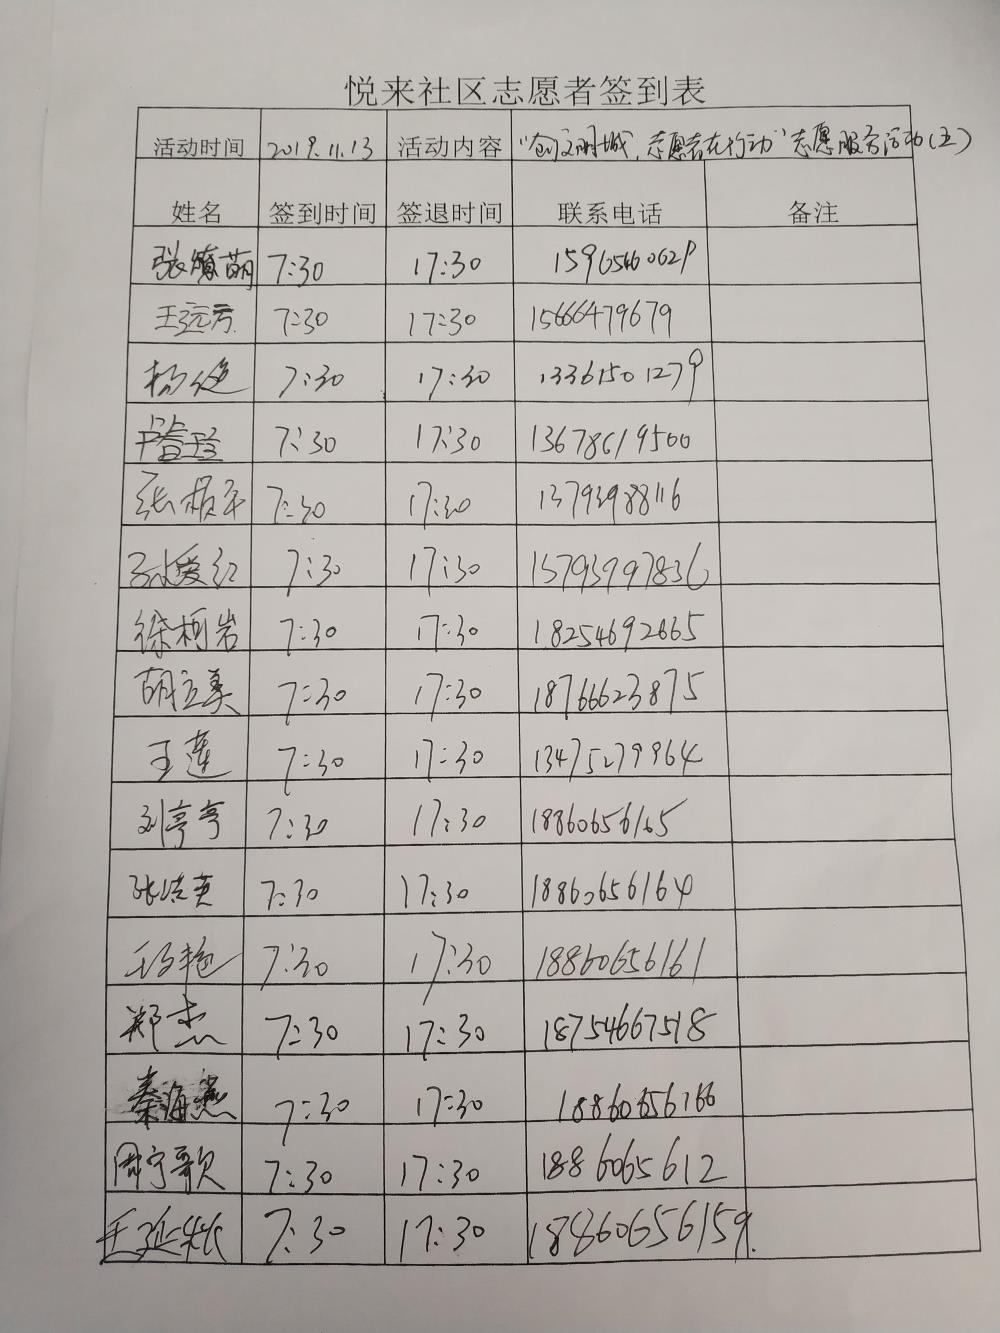 悦来社区志愿者签到表
活动时间 2019.11.13 活动内容 "创文明城,志愿者在行动"志愿服务活动(五)
姓名 签到时间 签退时间 联系电话 备注
张 萌 7:30 17:30 15965460629
王远方 7:30 17:30 15666479679
杨 7:30 17:30 13361501279
7:30 17:30 13678619500
张根平 7:30 17:30 13793988116
孙爱红 7:30 17:30 15793997836
徐柯岩 7:30 17:30 18254692665
胡立美 7:30 17:30 18766623875
王莲 7:30 17:30 13475279964
刘亭亭 7:30 17:30 18860656165
张洪英 7:30 17:30 18860656164
王 艳 7:30 17:30 18860656161
郑杰 7:30 17:30 18754667518
秦海燕 7:30 17:30 18860656166
周宁歌 7:30 17:30 1886065612
王延秋 7:30 17:30 18860656159.